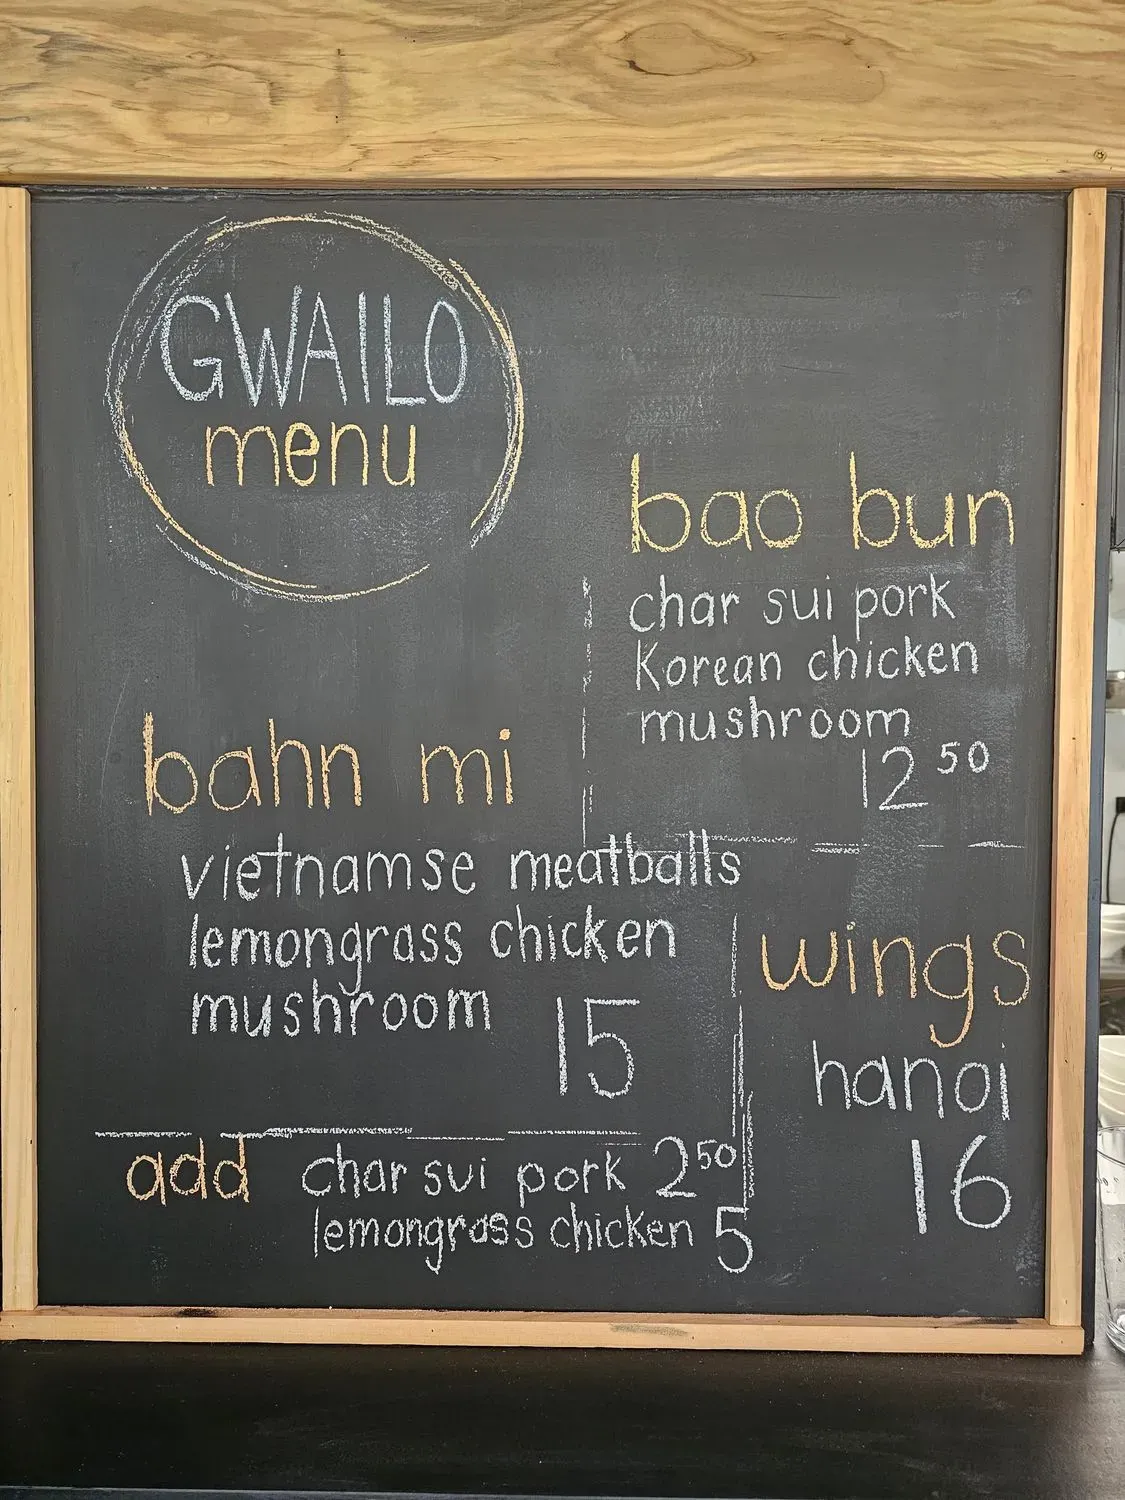 GWAILO
menu
bao bun
char sui pork
Korean chicken
mushroom
12 50
bahn mi
vietnamse meatballs
lemongrass chicken
mushroom
15
wings
hanoi
16
add char sui pork 2 50
lemongrass chicken 5